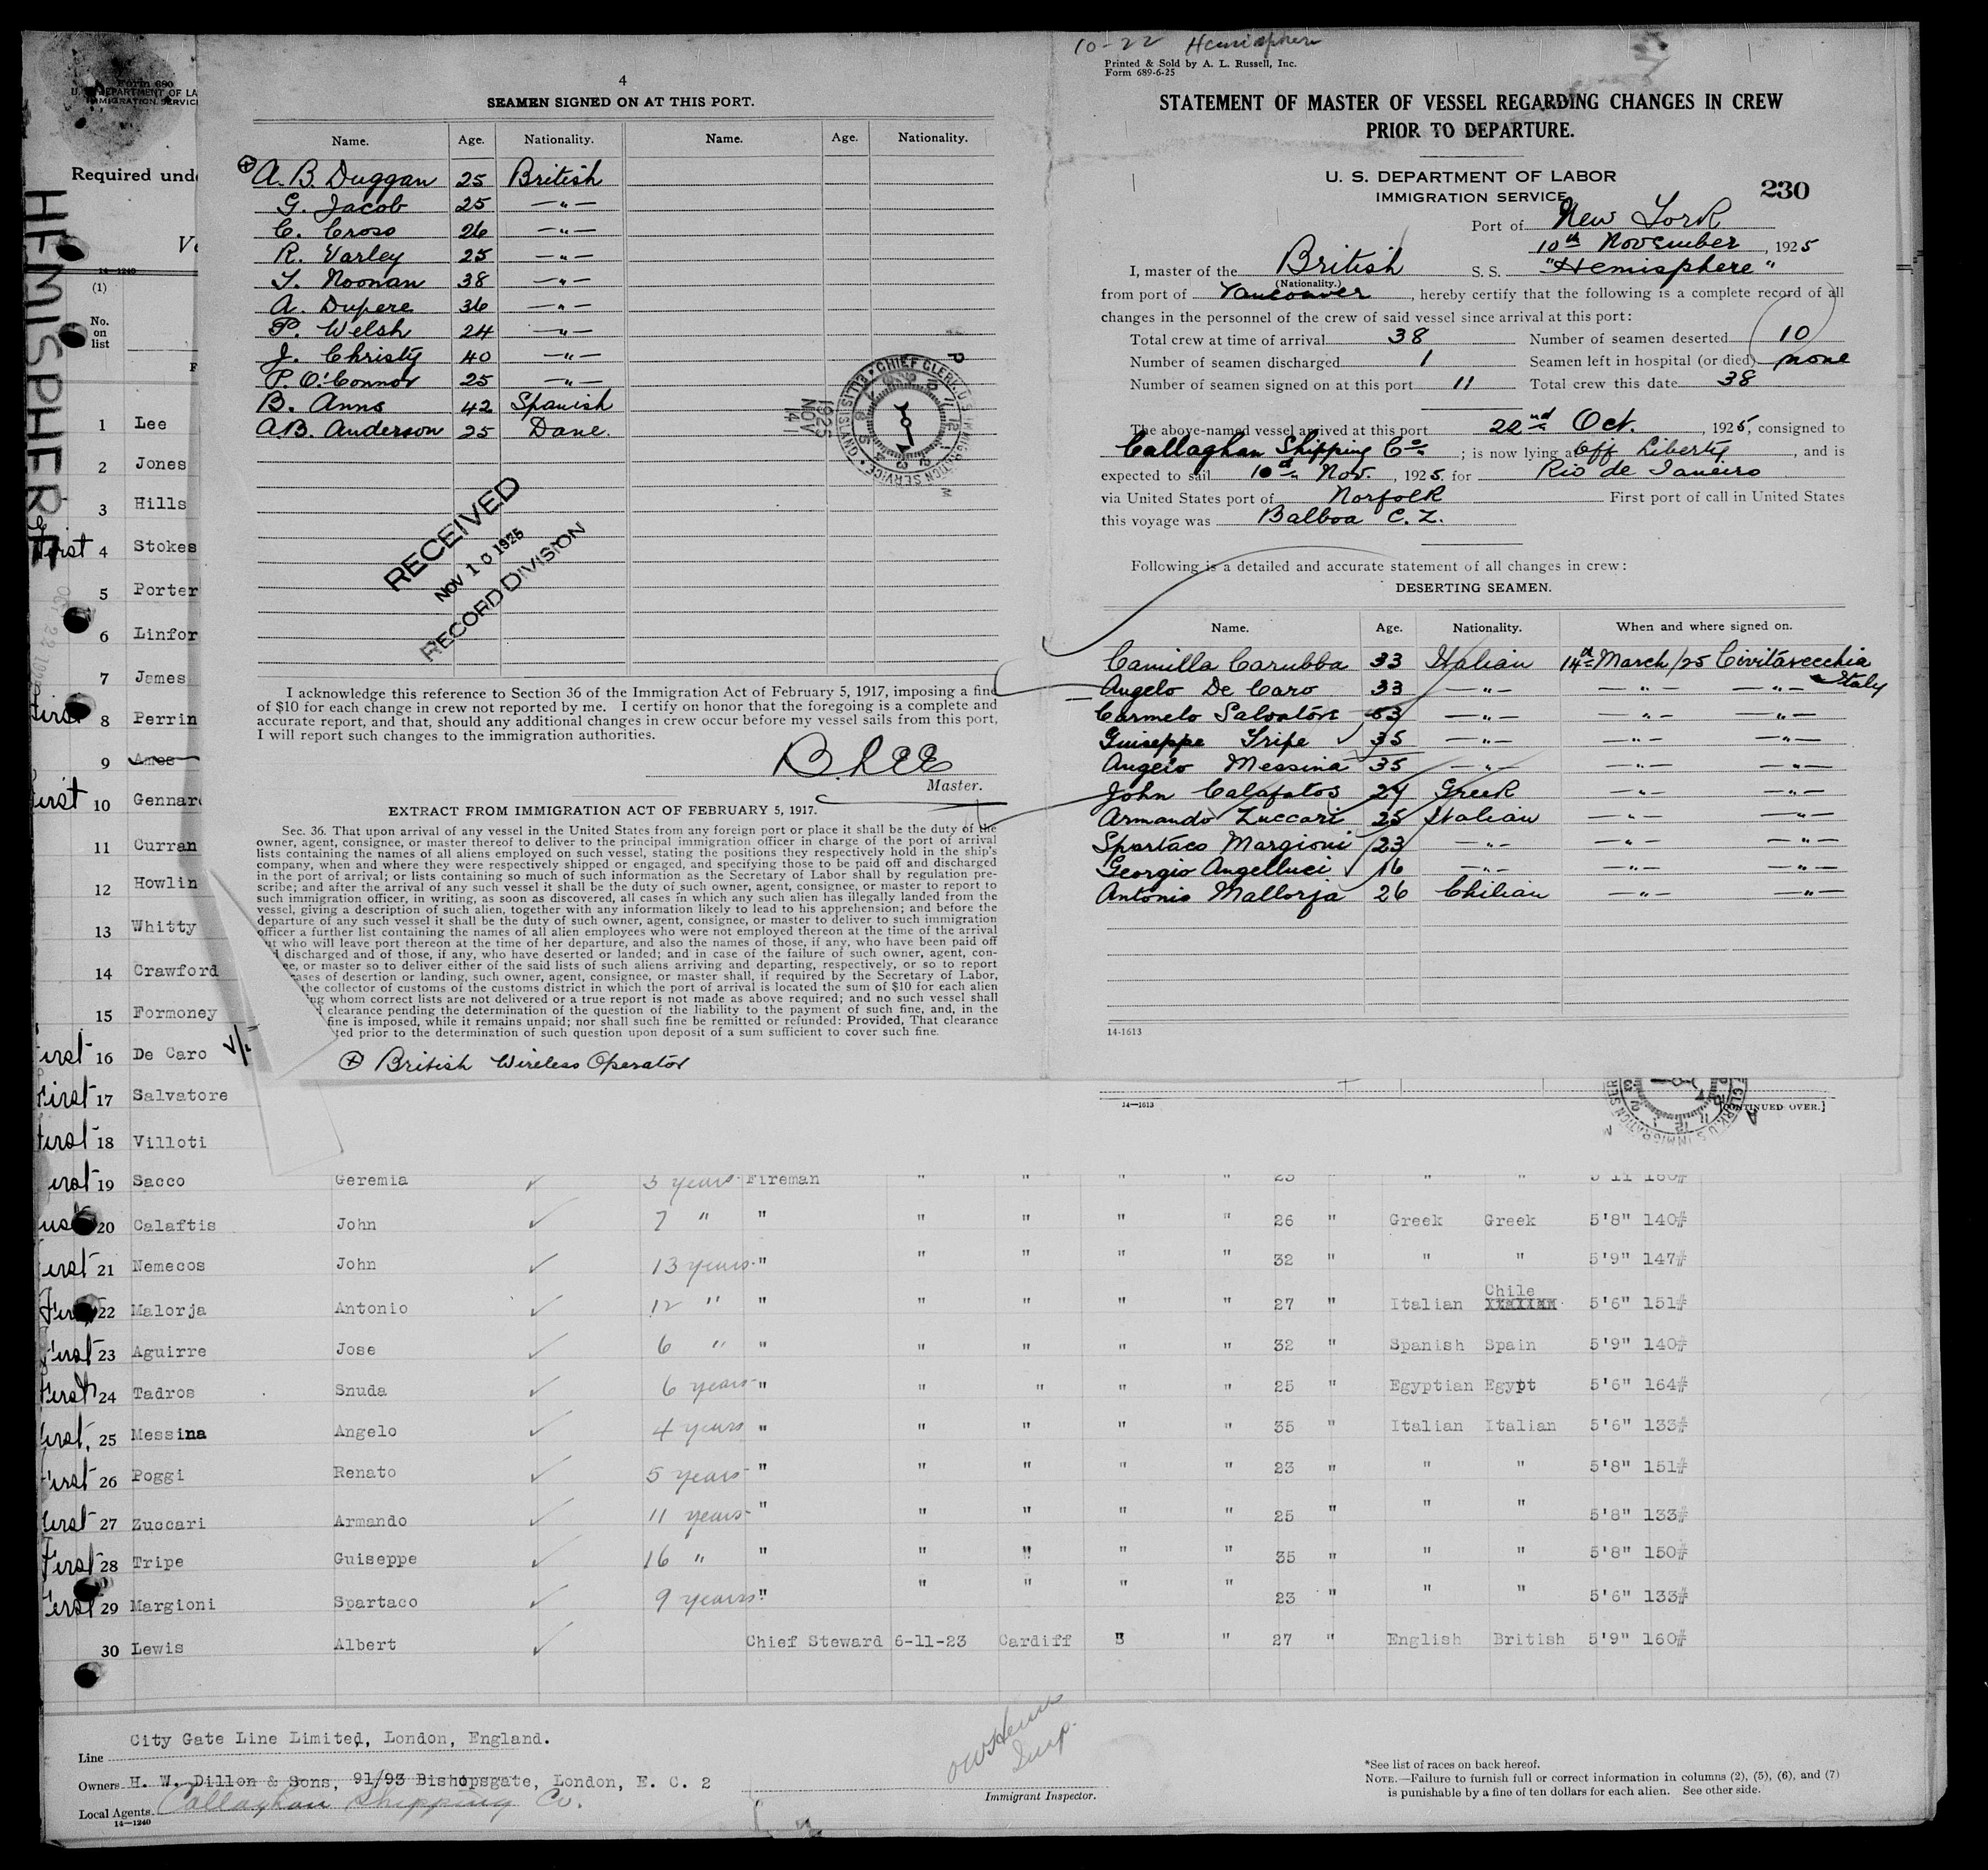 4
SEAMEN SIGNED ON AT THIS PORT.
Name. Age. Nationality. Name. Age. Nationality.
A. B. Duggan 25 British
G. Jacob 25 —"—
C. Cross 26 —"—
R. Varley 25 —"—
T. Noonan 38 —"—
A. Dupere 36 —"—
P. Welsh 24 —"—
J. Christy 40 —"—
P. O'Connor 25 —"—
B. Anns 42 Spanish
A.B. Anderson 25 Dane.
CHIEF CLERK, U.S. IMMIGRATION SERVICE • ELLIS ISLAND
1925 NOV
RECEIVED
NOV 10 1925
RECORD DIVISION
I acknowledge this reference to Section 36 of the Immigration Act of February 5, 1917, imposing a fine
of $10 for each change in crew not reported by me. I certify on honor that the foregoing is a complete and
accurate report, and that, should any additional changes in crew occur before my vessel sails from this port,
I will report such changes to the immigration authorities.
B. LEE
Master.
EXTRACT FROM IMMIGRATION ACT OF FEBRUARY 5, 1917.
Sec. 36. That upon arrival of any vessel in the United States from any foreign port or place it shall be the duty of the
owner, agent, consignee, or master thereof to deliver to the principal immigration officer in charge of the port of arrival
lists containing the names of all aliens employed on such vessel, stating the positions they respectively hold in the ship's
company, when and where they were respectively shipped or engaged, and specifying those to be paid off and discharged
in the port of arrival; or lists containing so much of such information as the Secretary of Labor shall by regulation pre-
scribe; and after the arrival of any such vessel it shall be the duty of such owner, agent, consignee, or master to report to
such immigration officer, in writing, as soon as discovered, all cases in which any such alien has illegally landed from the
vessel, giving a description of such alien, together with any information likely to lead to his apprehension; and before the
departure of any such vessel it shall be the duty of such owner, agent, consignee, or master to deliver to such immigration
officer a further list containing the names of all alien employees who were not employed thereon at the time of the arrival
who will leave port thereon at the time of her departure, and also the names of those, if any, who have been paid off
discharged and of those, if any, who have deserted or landed; and in case of the failure of such owner, agent, con-
or master so to deliver either of the said lists of such aliens arriving and departing, respectively, or so to report
of desertion or landing, such owner, agent, consignee, or master shall, if required by the Secretary of Labor,
the collector of customs of the customs district in which the port of arrival is located the sum of $10 for each alien
whom correct lists are not delivered or a true report is not made as above required; and no such vessel shall
clearance pending the determination of the question of the liability to the payment of such fine, and, in the
fine is imposed, while it remains unpaid; nor shall such fine be remitted or refunded: Provided, That clearance
prior to the determination of such question upon deposit of a sum sufficient to cover such fine.
British Wireless Operator
10-22 Hemisphere
Printed & Sold by A. L. Russell, Inc.
Form 689-6-25
STATEMENT OF MASTER OF VESSEL REGARDING CHANGES IN CREW
PRIOR TO DEPARTURE.
U. S. DEPARTMENT OF LABOR
IMMIGRATION SERVICE
230
Port of New York
10th November, 1925
I, master of the British S. S. "Hemisphere"
(Nationality.)
from port of Vancouver, hereby certify that the following is a complete record of all
changes in the personnel of the crew of said vessel since arrival at this port:
Total crew at time of arrival 38 Number of seamen deserted 10
Number of seamen discharged 1 Seamen left in hospital (or died) none
Number of seamen signed on at this port 11 Total crew this date 38
The above-named vessel arrived at this port 22nd Oct., 1925, consigned to
Callaghan Shipping Co; is now lying at Off Liberty, and is
expected to sail 10th Nov., 1925, for Rio de Janeiro
via United States port of Norfolk First port of call in United States
this voyage was Balboa C. Z.
Following is a detailed and accurate statement of all changes in crew:
DESERTING SEAMEN.
Name. Age. Nationality. When and where signed on.
Camilla Carubba 33 Italian 14th March/25 Civitavecchia
Italy
Angelo De Caro 33 —"— —"— —"—
Carmelo Salvatore 53 —"— —"— —"—
Guiseppe Tripe 35 —"— —"— —"—
Angelo Messina 35 —"— —"— —"—
John Calafatos 27 Greek —"— —"—
Armando Zuccari 25 Italian —"— —"—
Spartaco Margioni 23 —"— —"— —"—
Georgio Angellucci 16 —"— —"— —"—
Antonio Mallorja 26 Chilian —"— —"—
14-1613
14—1613
[CONTINUED OVER.]
Form 680
U. S. DEPARTMENT OF LA
IMMIGRATION SERVIC
Required und
HEMISPHERE
14—1240
(1)
No. on list
1 Lee
2 Jones
3 Hills
First 4 Stokes
5 Porter
6 Linfor
7 James
First 8 Perrin
9 Ames
First 10 Gennar
11 Curran
12 Howlin
13 Whitty
14 Crawford
15 Formoney
First 16 De Caro
First 17 Salvatore
First 18 Villoti
First 19 Sacco Geremia 3 years Fireman " " " " 23 " " 5'11 160#
First 20 Calaftis John 7 " " " " " " 26 " Greek Greek 5'8" 140#
First 21 Nemecos John 13 years " " " " " 32 " " " 5'9" 147#
First 22 Malorja Antonio 12 " " " " " " 27 " Italian Chile Italian 5'6" 151#
First 23 Aguirre Jose 6 " " " " " " 32 " Spanish Spain 5'9" 140#
First 24 Tadros Snuda 6 years " " " " " 25 " Egyptian Egypt 5'6" 164#
First 25 Messina Angelo 4 years " " " " " 35 " Italian Italian 5'6" 133#
First 26 Poggi Renato 5 years " " " " " 23 " " " 5'8" 151#
First 27 Zuccari Armando 11 years " " " " " 25 " " " 5'8" 133#
First 28 Tripe Guiseppe 16 " " " " " " 35 " " " 5'8" 150#
First 29 Margioni Spartaco 9 years " " " " " 23 " " " 5'6" 133#
30 Lewis Albert Chief Steward 6-11-23 Cardiff " " 27 " English British 5'9" 160#
Line City Gate Line Limited, London, England.
Owners H. W. Dillon & Sons, 91/93 Bishopsgate, London, E. C. 2
Local Agents Callaghan Shipping Co.
14—1240
Insp.
Immigrant Inspector.
*See list of races on back hereof.
NOTE.—Failure to furnish full or correct information in columns (2), (5), (6), and (7)
is punishable by a fine of ten dollars for each alien. See other side.